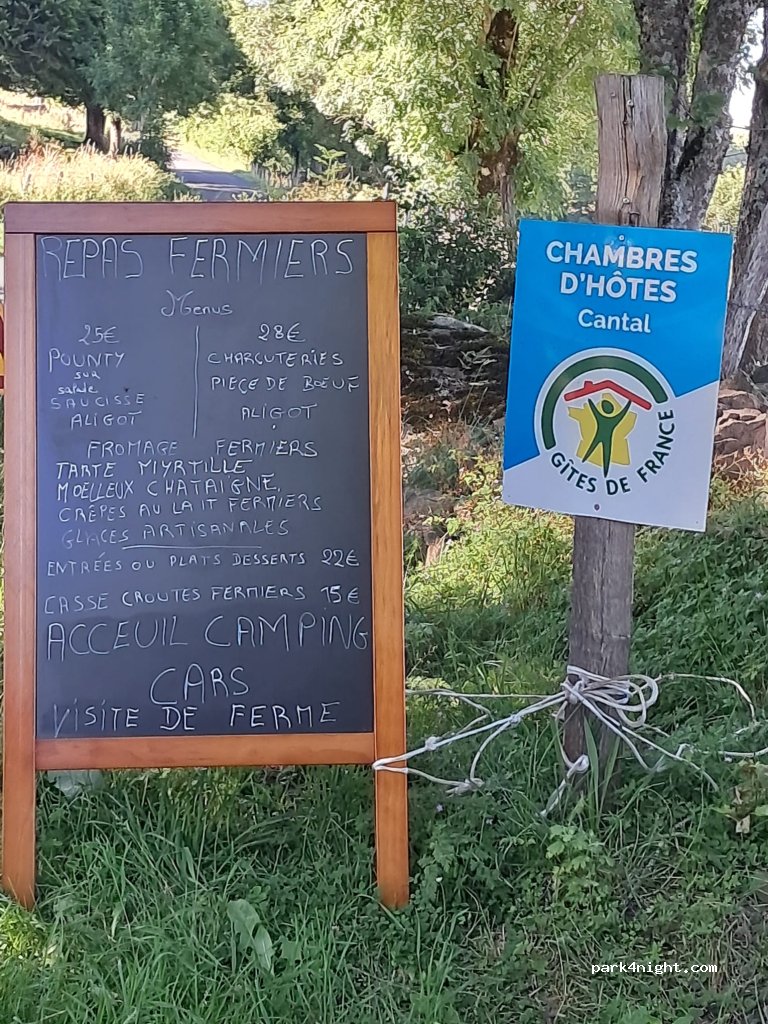 REPAS FERMIERS
Menus
25€
POUNTY
SUR
salade
SAUCISSE
ALIGOT
28€
CHARCUTERIES
PIEÇE DE BŒUF
ALIGOT
FROMAGE FERMIERS
TARTE MYRTILLE
MOELLEUX CHATAIGNE,
CRÊPES AU LAIT FERMIERS
GLACES ARTISANALES
ENTRÉES OU PLATS DESSERTS 22€
CASSE CROUTES FERMIERS 15€
ACCEUIL CAMPING
CARS
VISITE DE FERME
CHAMBRES
D'HÔTES
Cantal
GÎTES DE FRANCE
park4night.com